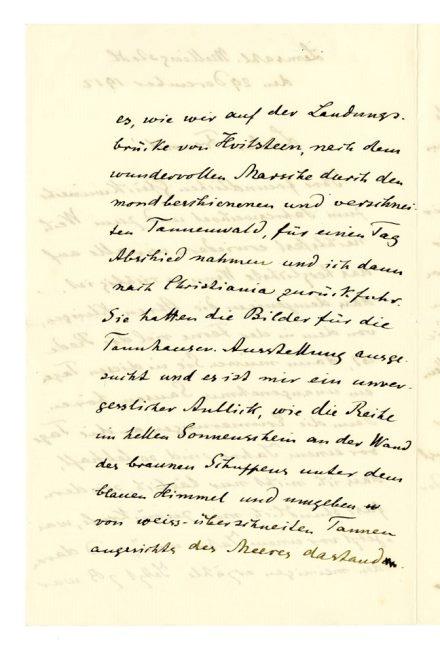 es, wie wir auf der Landungs-
brücke von Hvitsteen, nach dem
wundervollen Marsche durch den
mondbeschienenen und verschnei-
ten Tannenwald, für einen Tag
Abschied nahmen und ich dann
nach Christiania zurückfuhr.
Sie hatten die Bilder für die
Tannhauser. Ausstellung ausge-
sucht und es ist mir ein unver-
gesslicher Anblick, wie die Reihe
im hellen Sonnenschein an der Wand
des braunen Schuppens unter dem
blauen Himmel und umgeben
von weiss-überschneiten Tannen
angesichts des Meeres dastand.